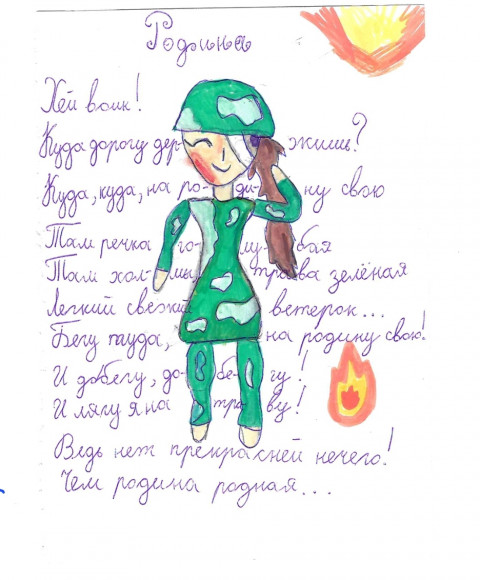 Родина
Хей воик!
Куда дорогу дер- жишь?
Куда, куда, на ро- ди- ну свою
Там речка го- лу- бая
Там хол- мы трава зелёная
Легкий свежий ветерок...
Бегу туда, на родину свою!
И добегу, до- бе- гу!
И лягу я на тра- ву!
Ведь нет прекрасней нечего!
Чем родина родная...